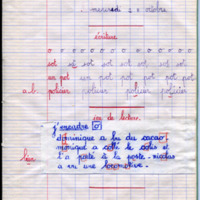 mercredi 2 octobre
écriture
o o o o o o o o o o o o
sot sot sot sot sot sot
un pot pot pot pot pot
a.b. policier policier policier policier
jeu de lecture
j'encadre o
lu dominique a bu du cacao
monique a collé le colis et
l'a porté à la poste - nicolas
a eu une locomotive.